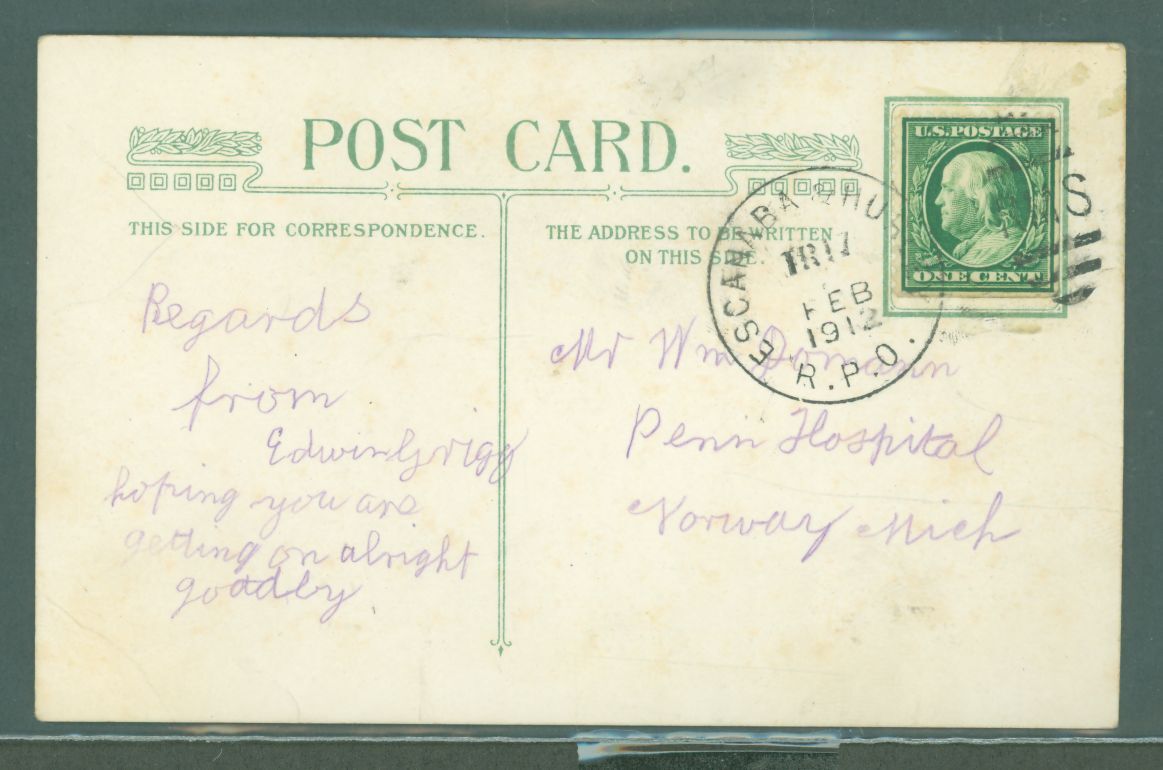 POST CARD.
THIS SIDE FOR CORRESPONDENCE.
THE ADDRESS TO BE WRITTEN
ON THIS SIDE.
U.S. POSTAGE
ONE CENT
ESCANABA & HU
TR 17
FEB
1912
R.P.O.
S
Regards
from
Edwin Grigg
hoping you are
getting on alright
goodby
Mr Wm Domann
Penn Hospital
Norway Mich